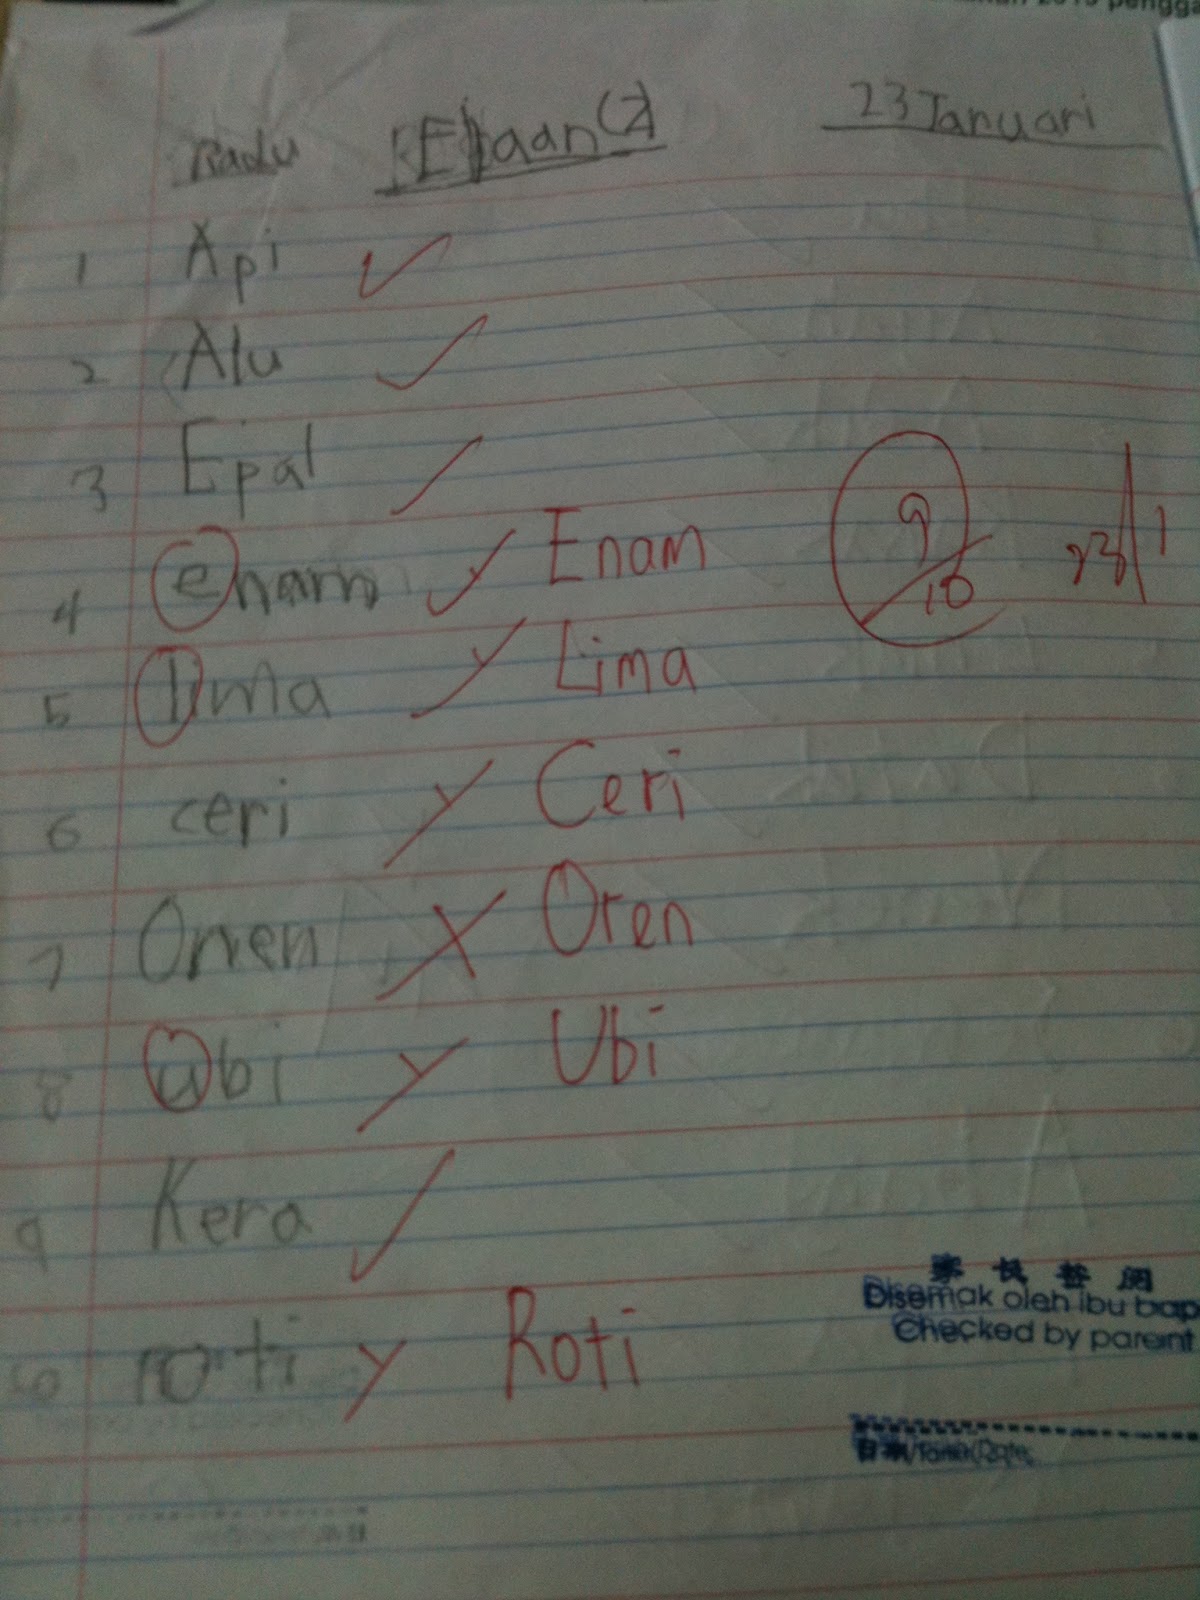 Rabu Ejaan (2) 23 Januari
1 Api
2 Alu
3 Epal
4 enam Enam
5 lima Lima
6 ceri Ceri
7 Onen Oren
8 ubi Ubi
9 Kera
10 roti Roti
9/10 23/1
家长签阅
Disemak oleh ibu bap
Checked by parent
日期/Tarikh/Date: